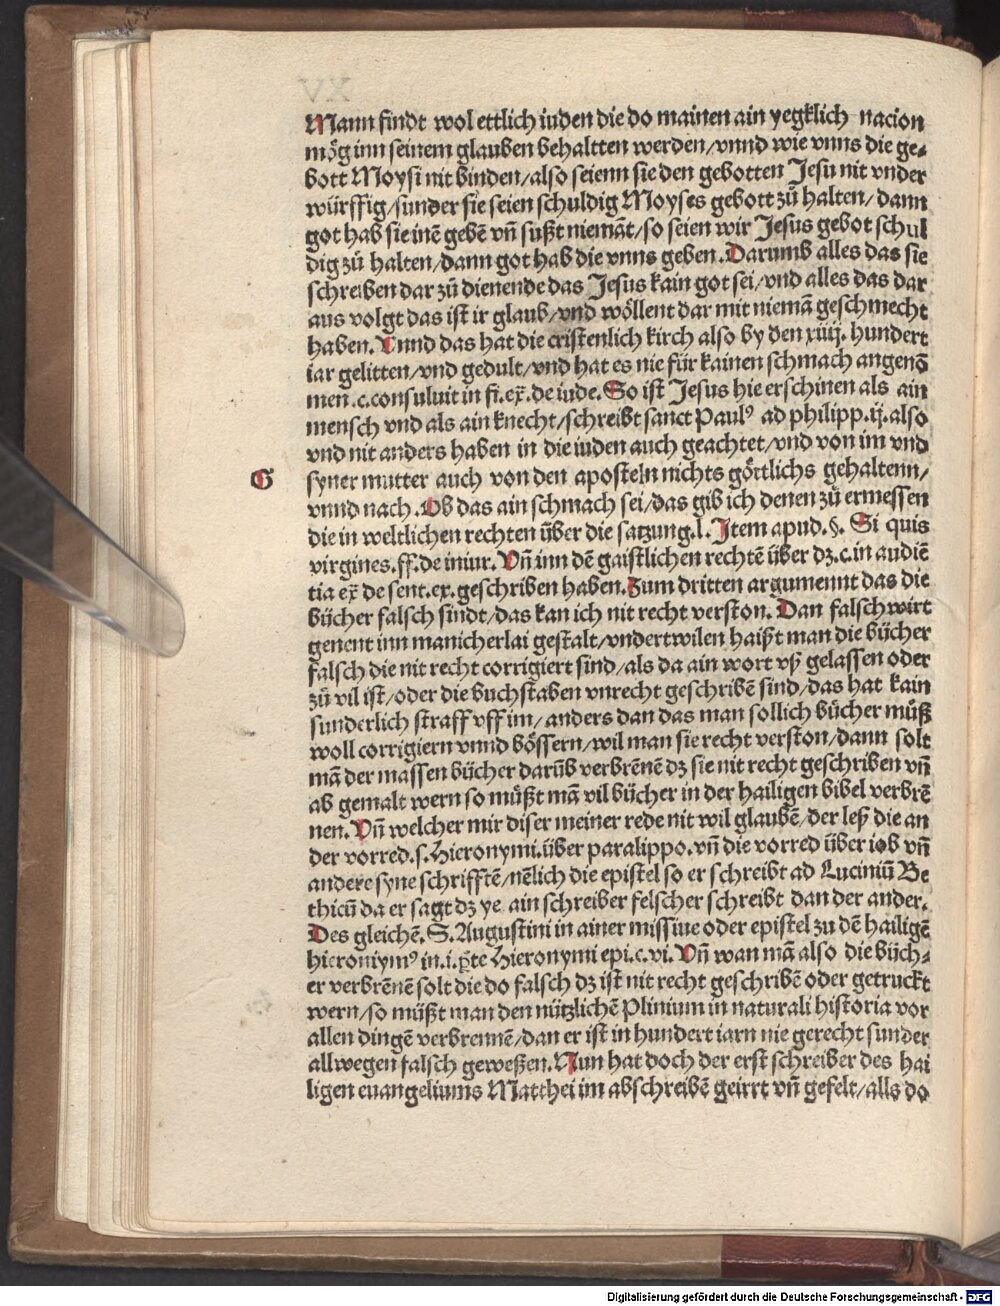 Mann findt wol ettlich iuden die do mainen ain yegklich nacion
mög inn seinem glauben behaltten werden/vnnd wie vnns die ge⸗
bott Moysi nit binden/also seienn sie den gebotten Jesu nit vnder
würffig/sunder sie seien schuldig Moyses gebott zů halten/dann
got hab sie inē gebē vñ sußt niemāt/so seien wir Jesus gebot schul
dig zů halten/dann got hab die vnns geben. Darumb alles das sie
schreiben dar zů dienende das Jesus kain got sei/vnd alles das dar
aus volgt das ist ir glaub/vnd wöllent dar mit niemā geschmecht
haben. Vnnd das hat die cristenlich kirch also by den xiiij. hundert
iar gelitten/vnd gedult/vnd hat es nie für kainen schmach angenō
men .c. consuluit in fi. ex̄. de iude. So ist Jesus hie erschinen als ain
mensch vnd als ain knecht/schreibt sanct Paulꝰ ad philipp. ij. also
vnd nit anders haben in die iuden auch geachtet/vnd von im vnd
G syner mutter auch von den aposteln nichts göttlichs gehaltenn/
vnnd nach. Ob das ain schmach sei/das gib ich denen zů ermessen
die in weltlichen rechten über die satzung .l. Item apud. §. Si quis
virgines. ff. de iniur. Vñ inn dē gaistlichen rechtē über dz .c. in audiē
tia ex̄ de sent. ex. geschriben haben. Zum dritten argumennt das die
bücher falsch sindt/das kan ich nit recht verston. Dan falsch wirt
genent inn manicherlai gestalt/vndertwilen haißt man die bücher
falsch die nit recht corrigiert sind/als da ain wort vß gelassen oder
zů vil ist/oder die buchstaben vnrecht geschribē sind/das hat kain
sunderlich straff vff im/anders dan das man sollich bücher müß
woll corrigiern vnnd bössern/wil man sie recht verston/dann solt
mā der massen bücher darūb verbrēnē dz sie nit recht geschriben vñ
ab gemalt wern so müßt mā vil bücher in der hailigen bibel verbrē
nen. Vñ welcher mir diser meiner rede nit wil glaubē/der leß die an
der vorred .s. Hieronymi. über paralippo. vñ die vorred über iob vñ
andere syne schrifftē/nēlich die epistel so er schreibt ad Luciniū Be
thicū da er sagt dz ye ain schreiber felscher schreibt dan der ander.
Des gleichē. S. Augustini in ainer missiue oder epistel zu dē hailigē
hieroniymꝰ in .i. p̄te Hieronymi epi. c. vi. Vñ wan mā also die büch⸗
er verbrēnē solt die do falsch dz ist nit recht geschribē oder getruckt
wern/so müßt man den nützlichē Plinium in naturali historia vor
allen dingē verbrennē/dan er ist in hundert iarn nie gerecht sunder
allwegen falsch geweßen. Nun hat doch der erst schreiber des hai
ligen euangeliums Matthei im abschreibē geirrt vñ gefelt/alls do
Digitalisierung gefördert durch die Deutsche Forschungsgemeinschaft - DFG